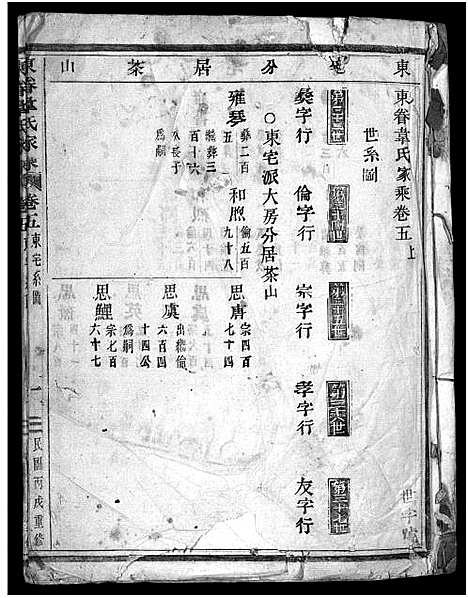 東 宅 分 居 茶 山
東眷韋氏家乘卷五上
世系圖
第三十三世
第三十四世
第三十五世
第三十六世
第三十七世
彜字行
倫字行
宗字行
孝字行
友字行
○東宅派大房分居茶山
雍琴
彜二百
五
繼彜三
百十六
公長子
爲嗣
和煦
倫五百
九十八
思唐
宗四百
七十四
思虞
出繼倫
六百四
十四公
爲嗣
思鯉
宗七百
六十七
東眷韋氏家乘
卷五
東宅系圖
一
民國丙戌重修